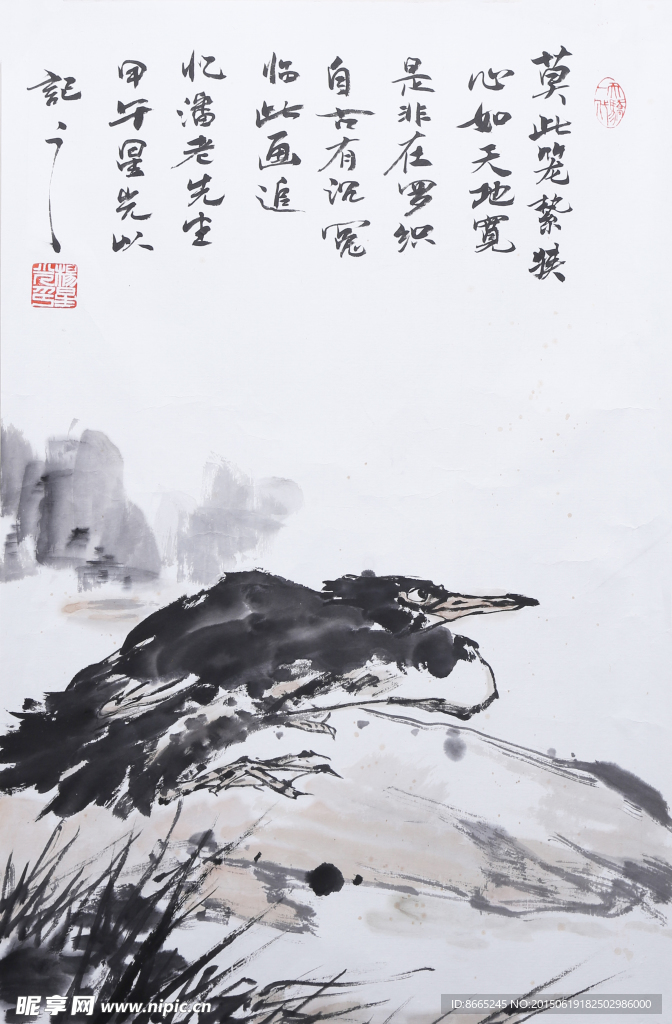 莫此笼絷狭
心如天地宽
是非在罗织
自古有沉冤
临此画追
忆潘老先生
甲午星光以
記之
昵享网 www.nipic.cn
ID:8665245 NO:20150619182502986000